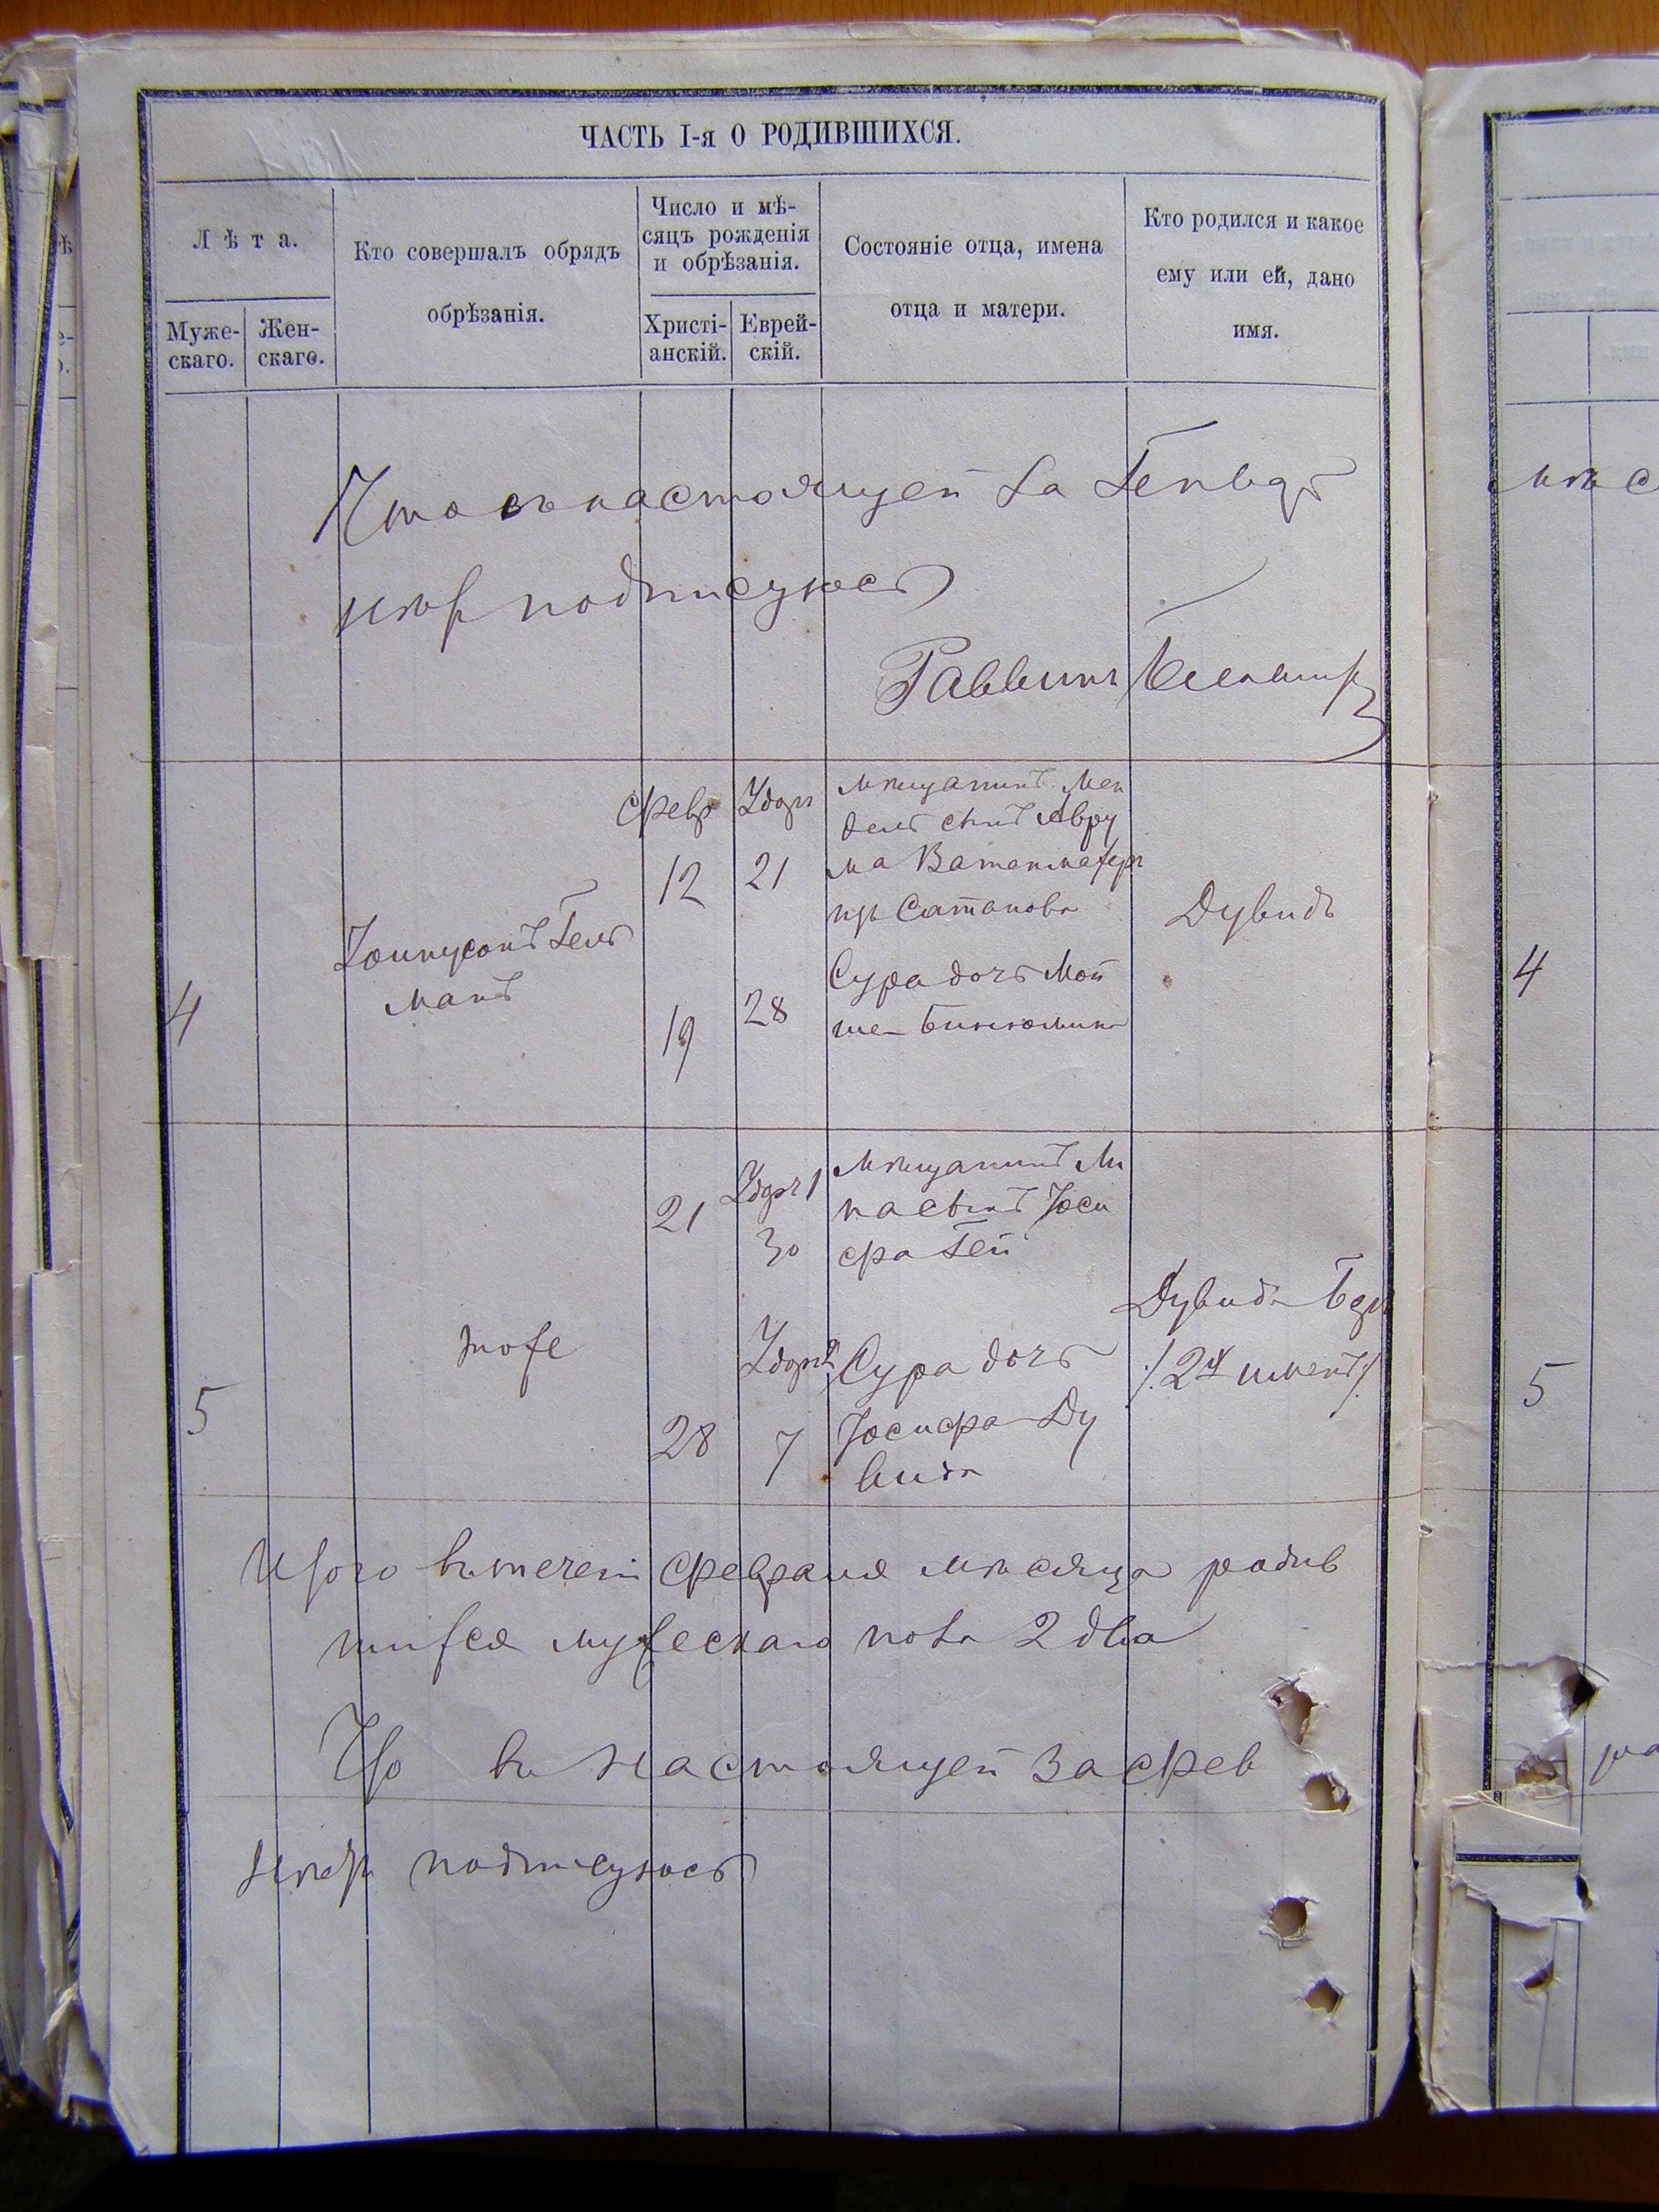 ЧАСТЬ I-я О РОДИВШИХСЯ.
Лѣта.
Муже-
скаго.
Жен-
скаго.
Кто совершалъ обрядъ
обрѣзанія.
Число и мѣ-
сяцъ рожденія
и обрѣзанія.
Христі-
анскій.
Еврей-
скій.
Состояніе отца, имена
отца и матери.
Кто родился и какое
ему или ей, дано
имя.
Что въ настоящей за Генварь
подписуюсь
Раввинъ
4
Гель
манъ
Февр
12
19
Адаръ
21
28
мѣщанинъ Мен
дель сынъ Авру
ма
изъ Сатанова
Сура дочь Мой
ше Биньомина
Дувидъ
4
5
тоже
21
28
Адаръ 1
30
Адаръ 2
7
мѣщанинъ Ми
на сынъ Иоси
фа Гей
Сура дочь
Иосифа Ду
вида
Дувидъ Беръ
/: 2х именъ :/
5
Итого въ течені февраля мѣсяца родив
шихся мужескаго пола 2 два
Что въ настоящей за фев
подписуюсь